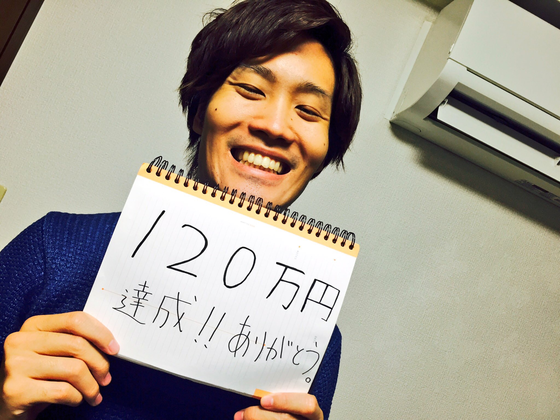 120万円
達成!! ありがとう。